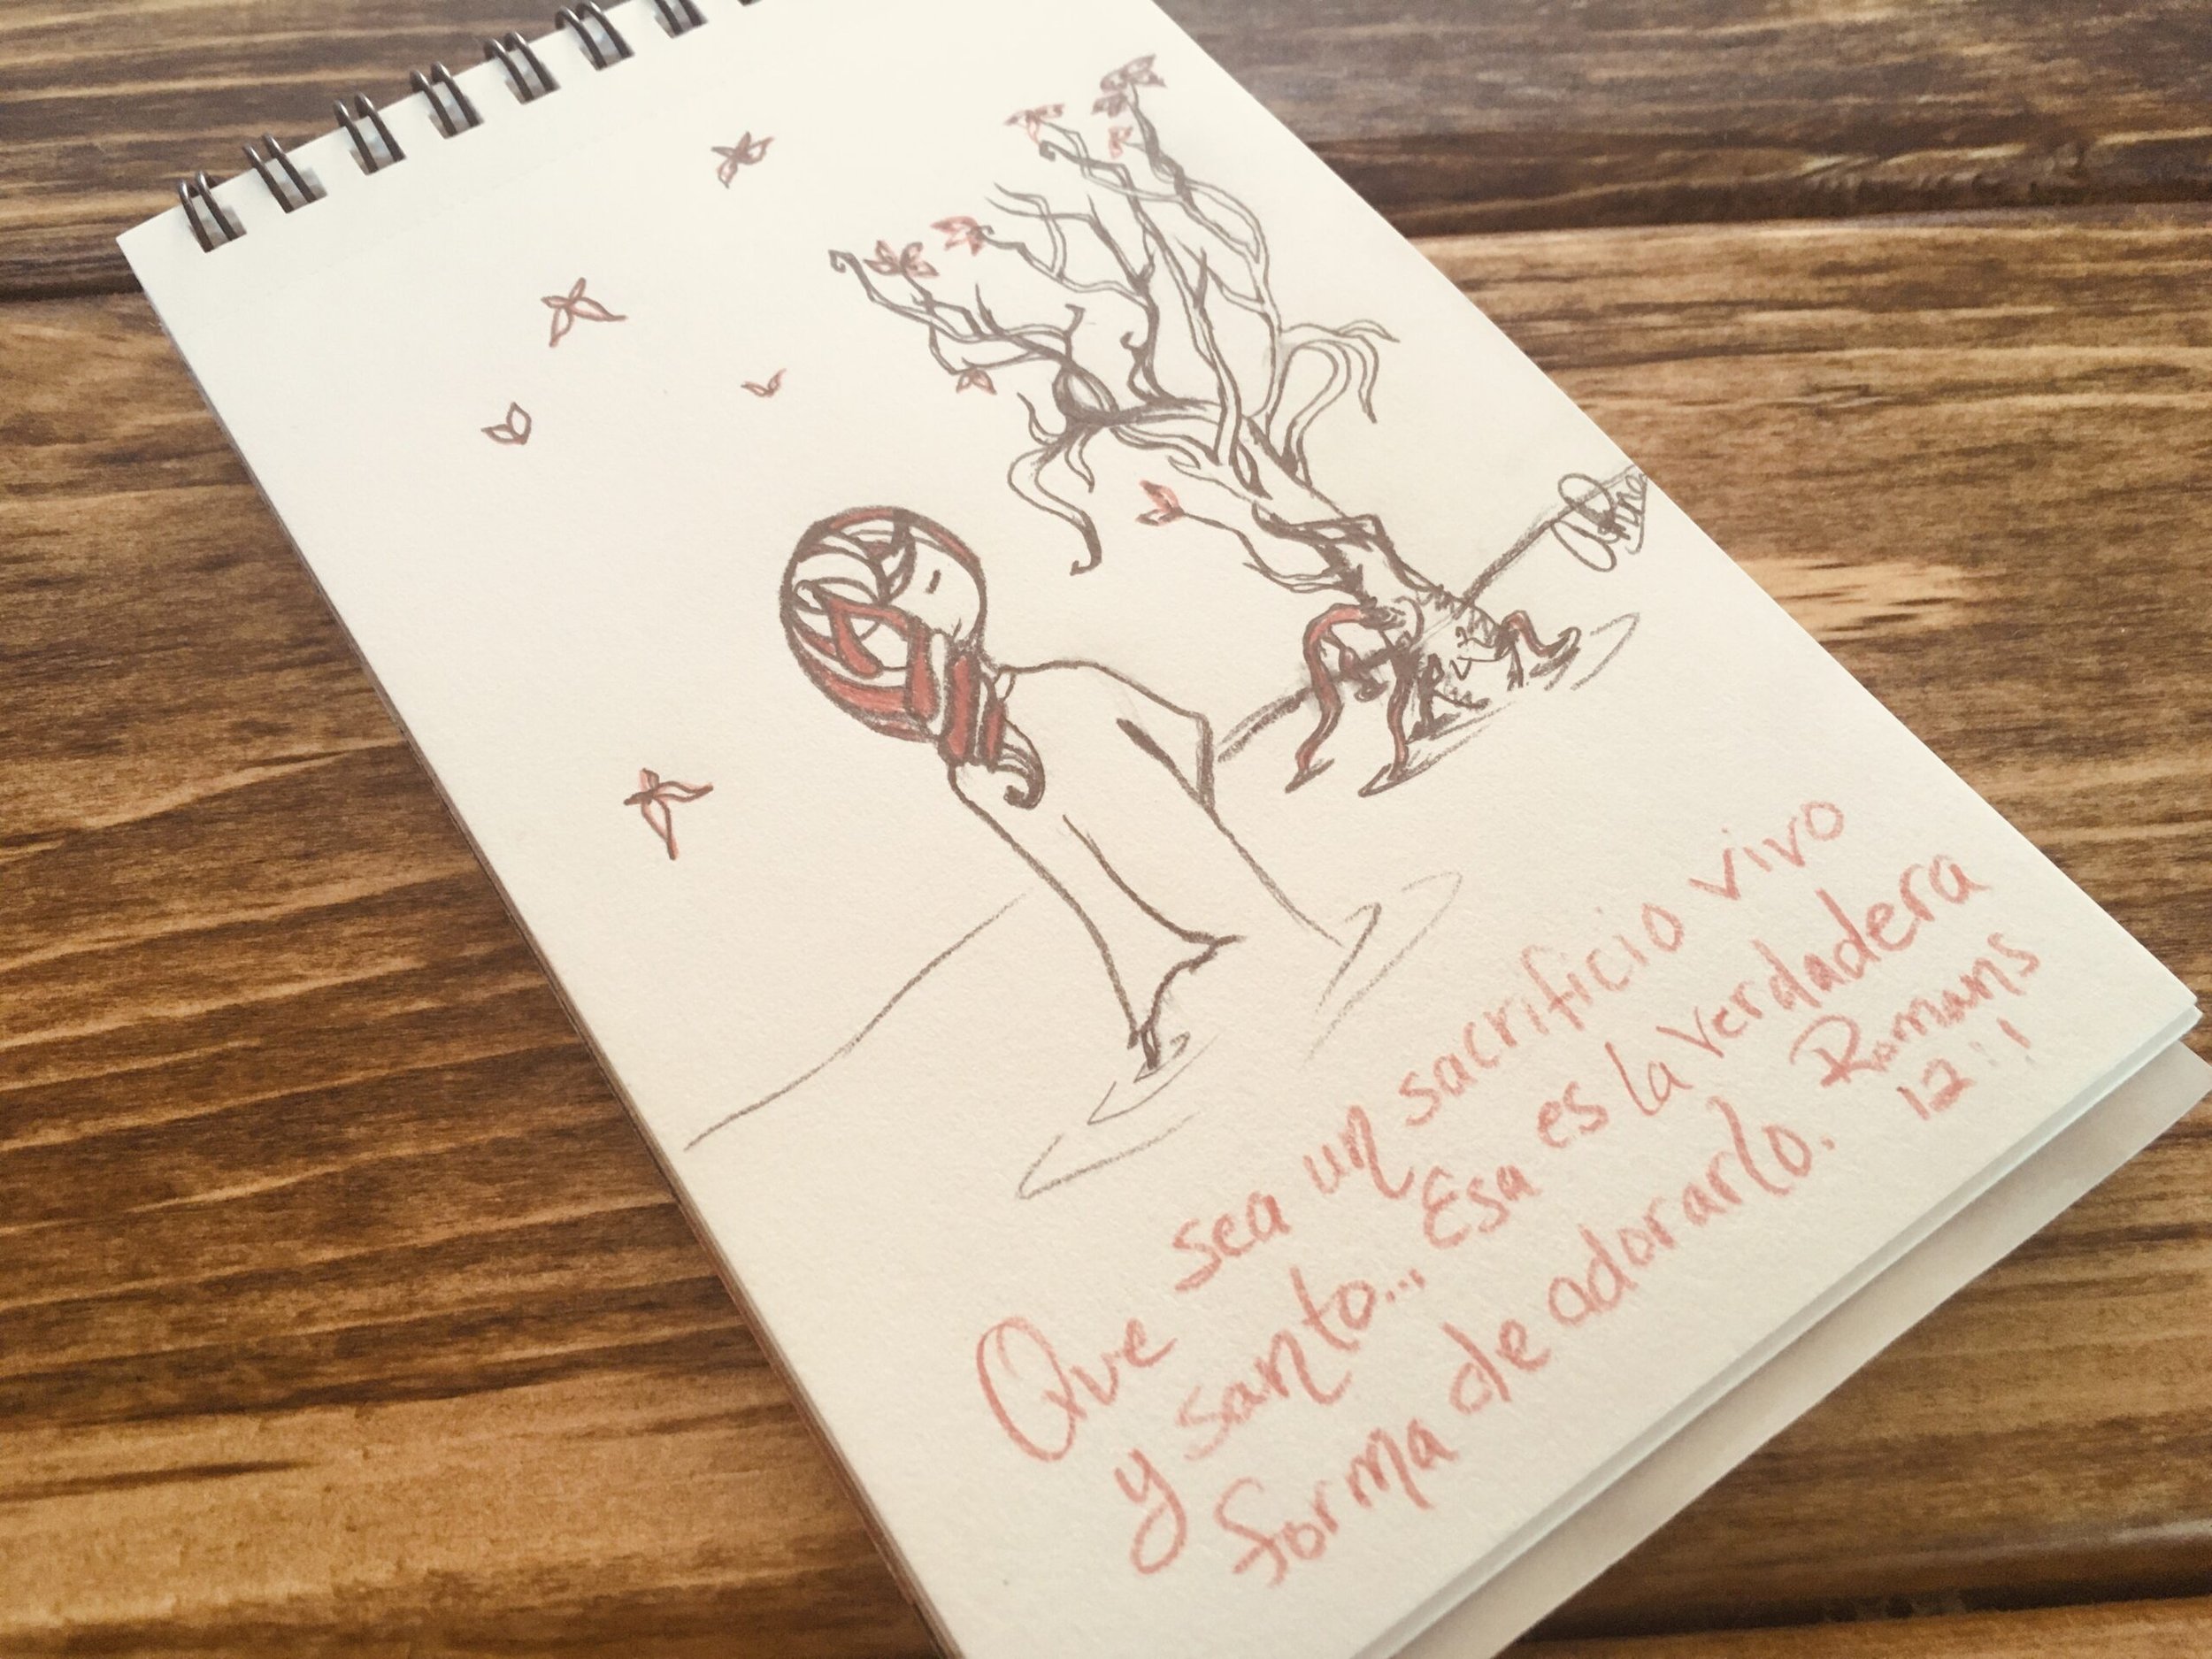 Que sea un sacrificio vivo
y santo... Esa es la verdadera
forma de adorarlo. Romans
12:1